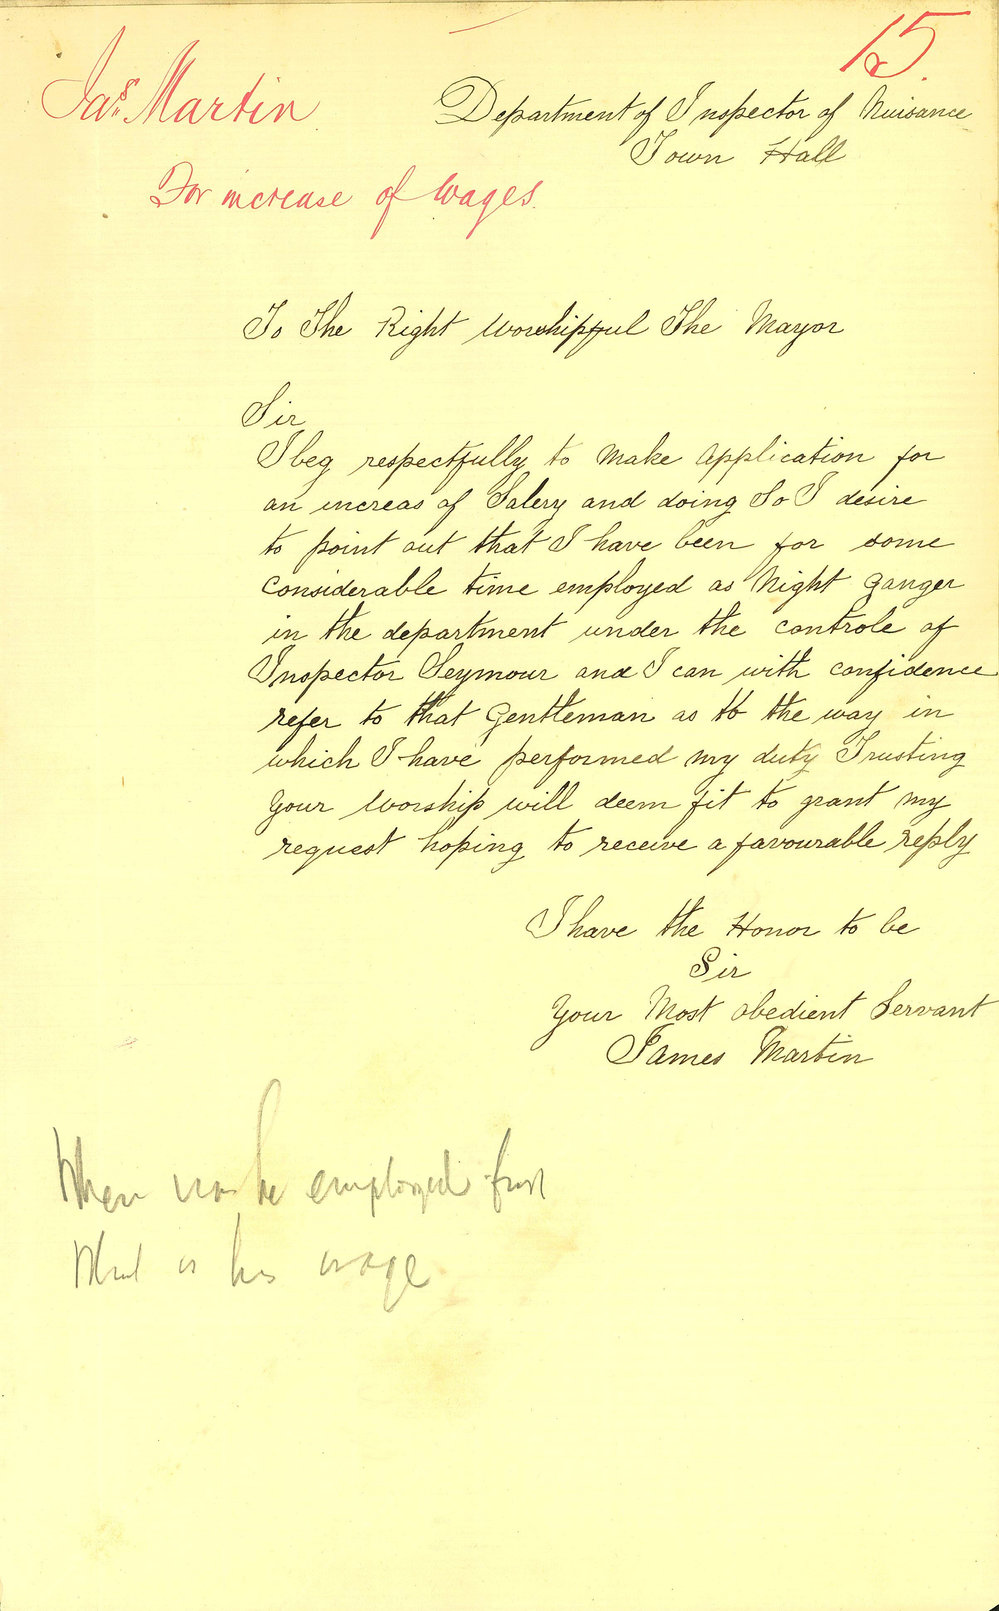 15.
Jas. Martin
Department of Inspector of Nuisance
Town Hall
For increase of Wages.
To The Right Worshipful The Mayor
Sir
I beg respectfully to Make Application for
an increas of Salery and doing So I desire
to point out that I have been for some
Considerable time employed as Night Ganger
in the department under the controle of
Inspector Seymour and I can with confidence
refer to that Gentleman as to the way in
which I have performed my duty Trusting
Your Worship will deem fit to grant my
request hoping to receive a favourable reply
I have the Honor to be
Sir
Your Most obedient Servant
James Martin
When was he employed first
What is his wage